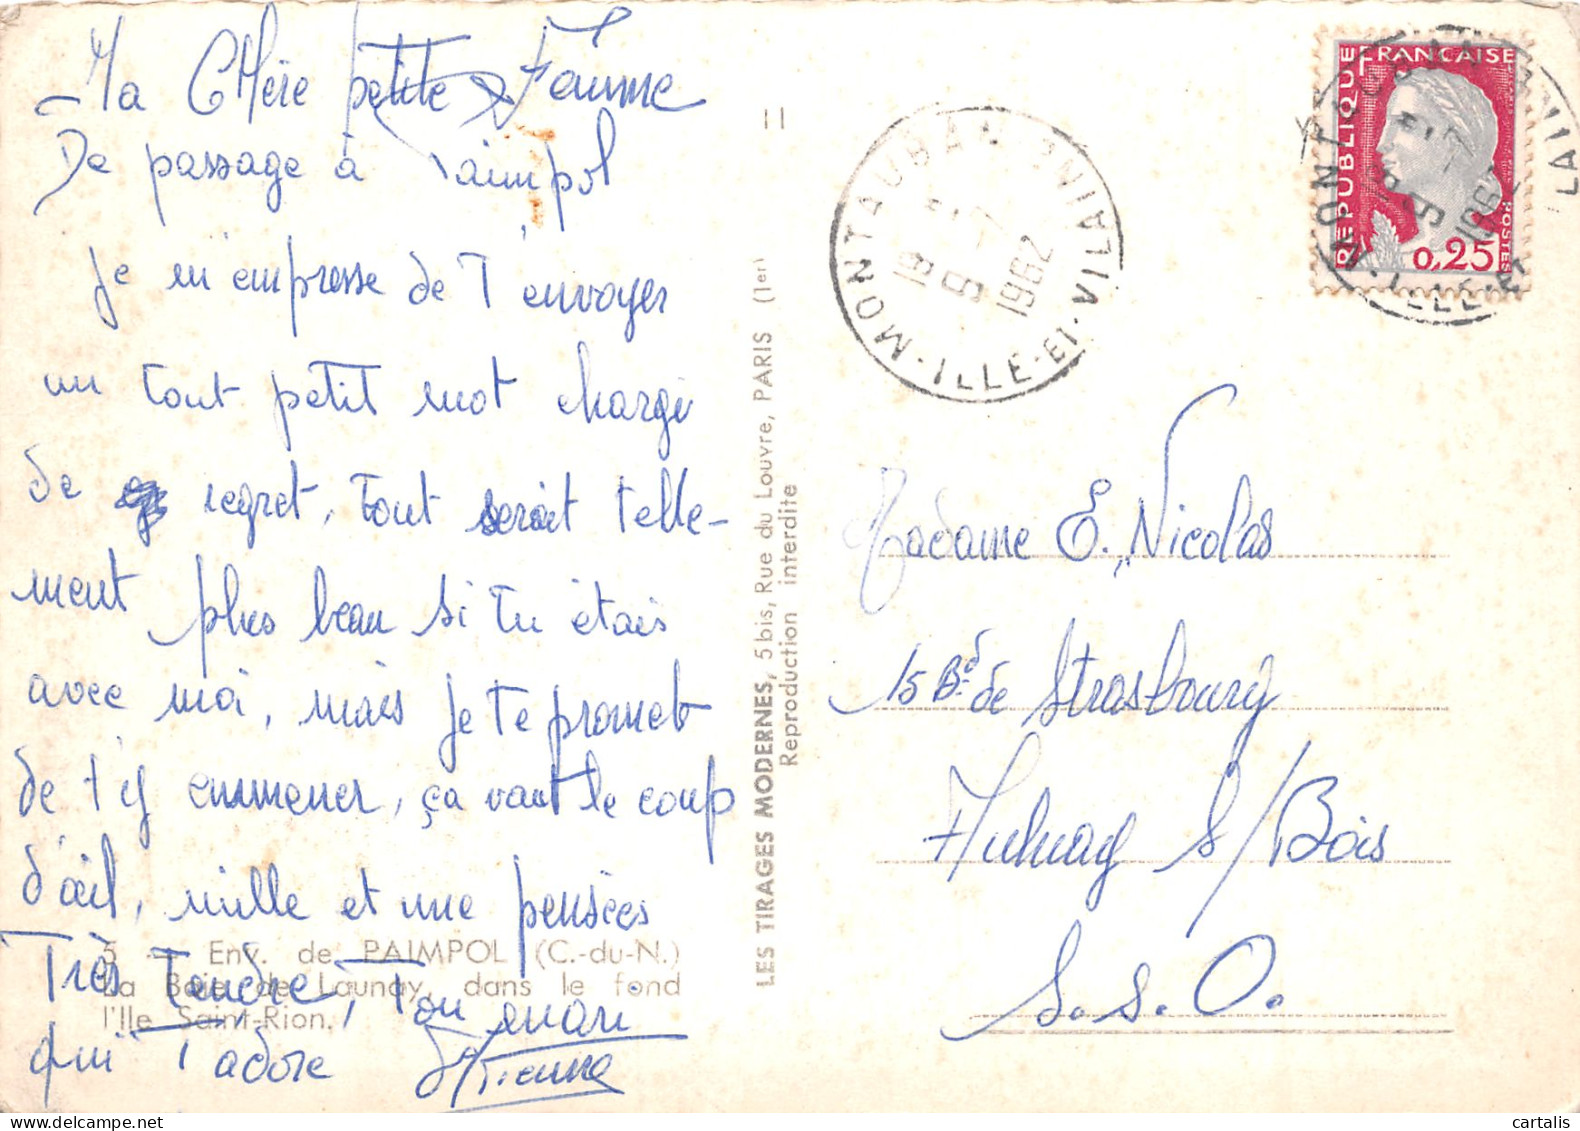 Ma Chère petite Femme
De passage à Paimpol
je m'empresse de T'envoyer
un tout petit mot chargé
de regret, tout serait telle-
ment plus beau si tu étais
avec moi, mais je te promet
de t'y emmener, ça vaut le coup
d'œil, mille et une pensées
Très Tendre, Ton mari
qui t'adore Etienne
5 - Env. de PAIMPOL (C.-du-N.)
La Baie de Launay, dans le fond
l'Ile Saint-Rion.
LES TIRAGES MODERNES, 5 bis, Rue du Louvre, PARIS (1er)
Reproduction interdite
11
MONTAUBAN
ILLE-ET-VILAINE
19 H
5-9
1962
REPUBLIQUE FRANCAISE
POSTES
0,25
Madame E. Nicolas
15 Bd de Strasbourg
Aulnay s/Bois
S.S.O.